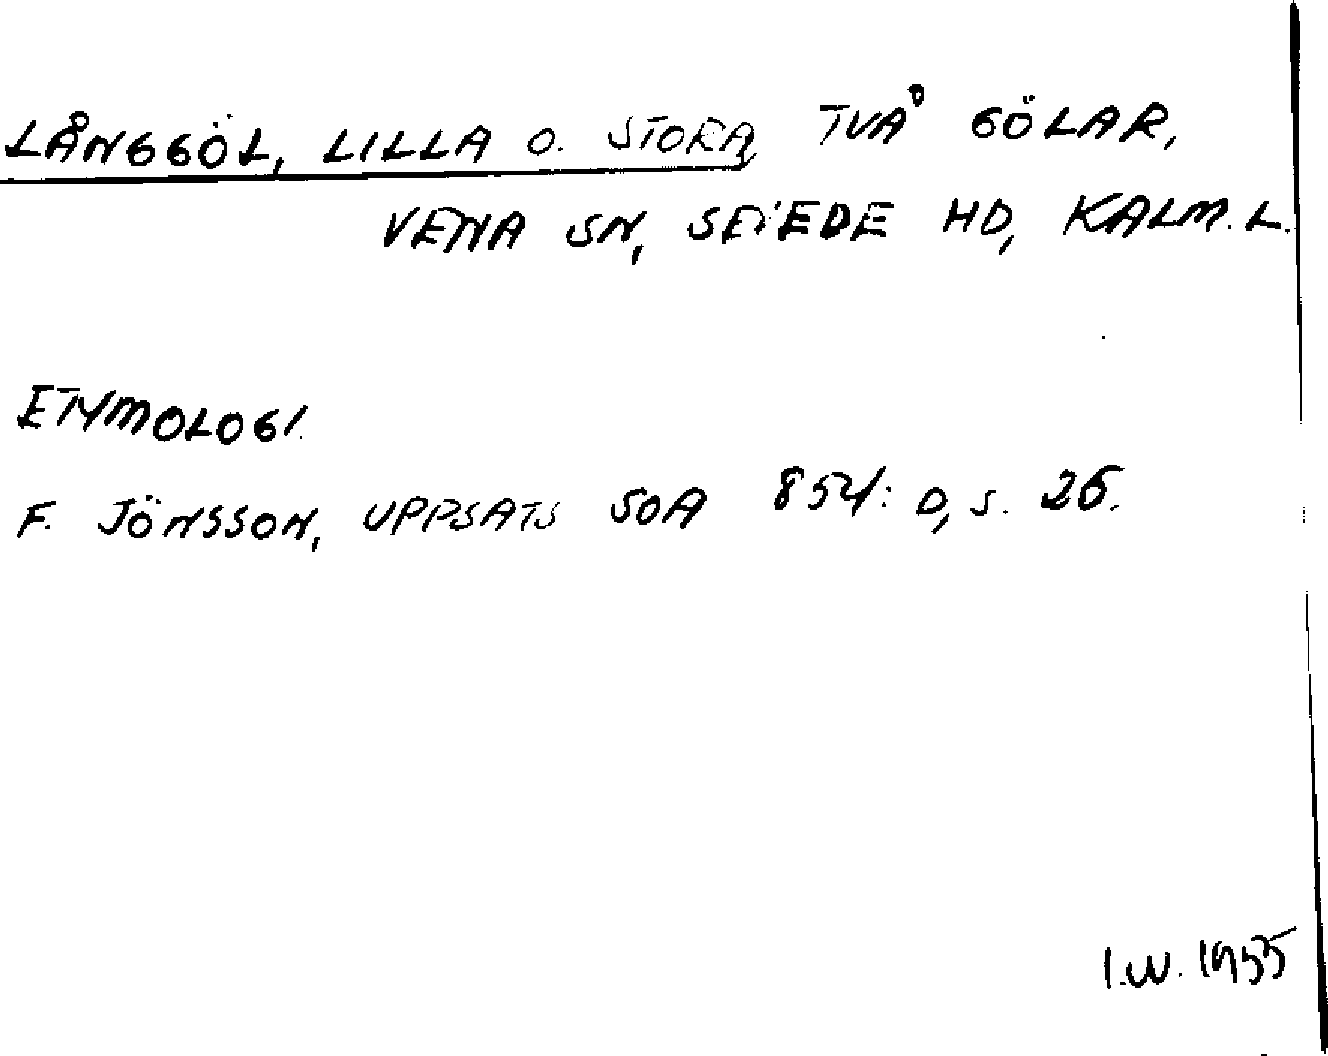 LÅNGGÖL, LILLA O. STORA, TVÅ GÖLAR,
VENA SN, SEVEDE HD, KALM. L.
ETYMOLOGI.
F. JÖNSSON, UPPSATS SOA 854: D, S. 26.
I.W. 1955